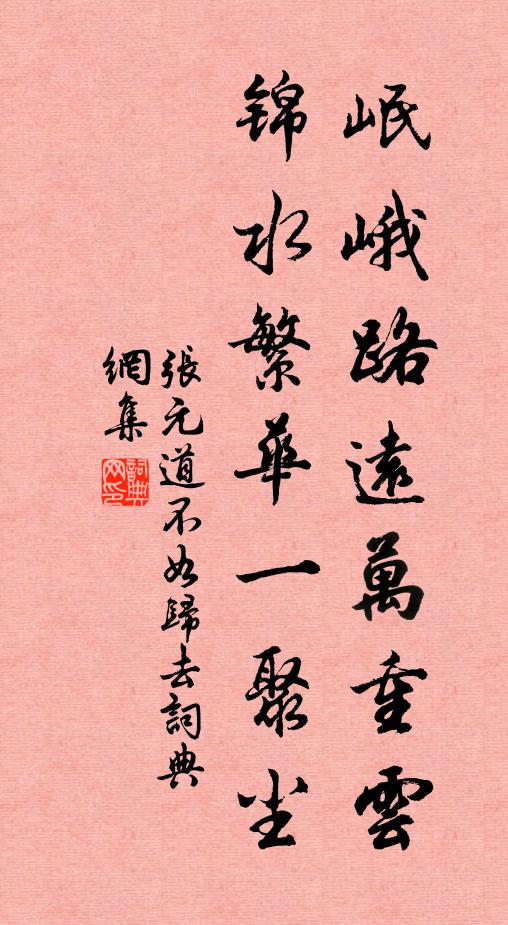 岷峨路遠萬重雲
錦水繁華一聚尘
張元道不如歸去詞典
網集
詞典
网印